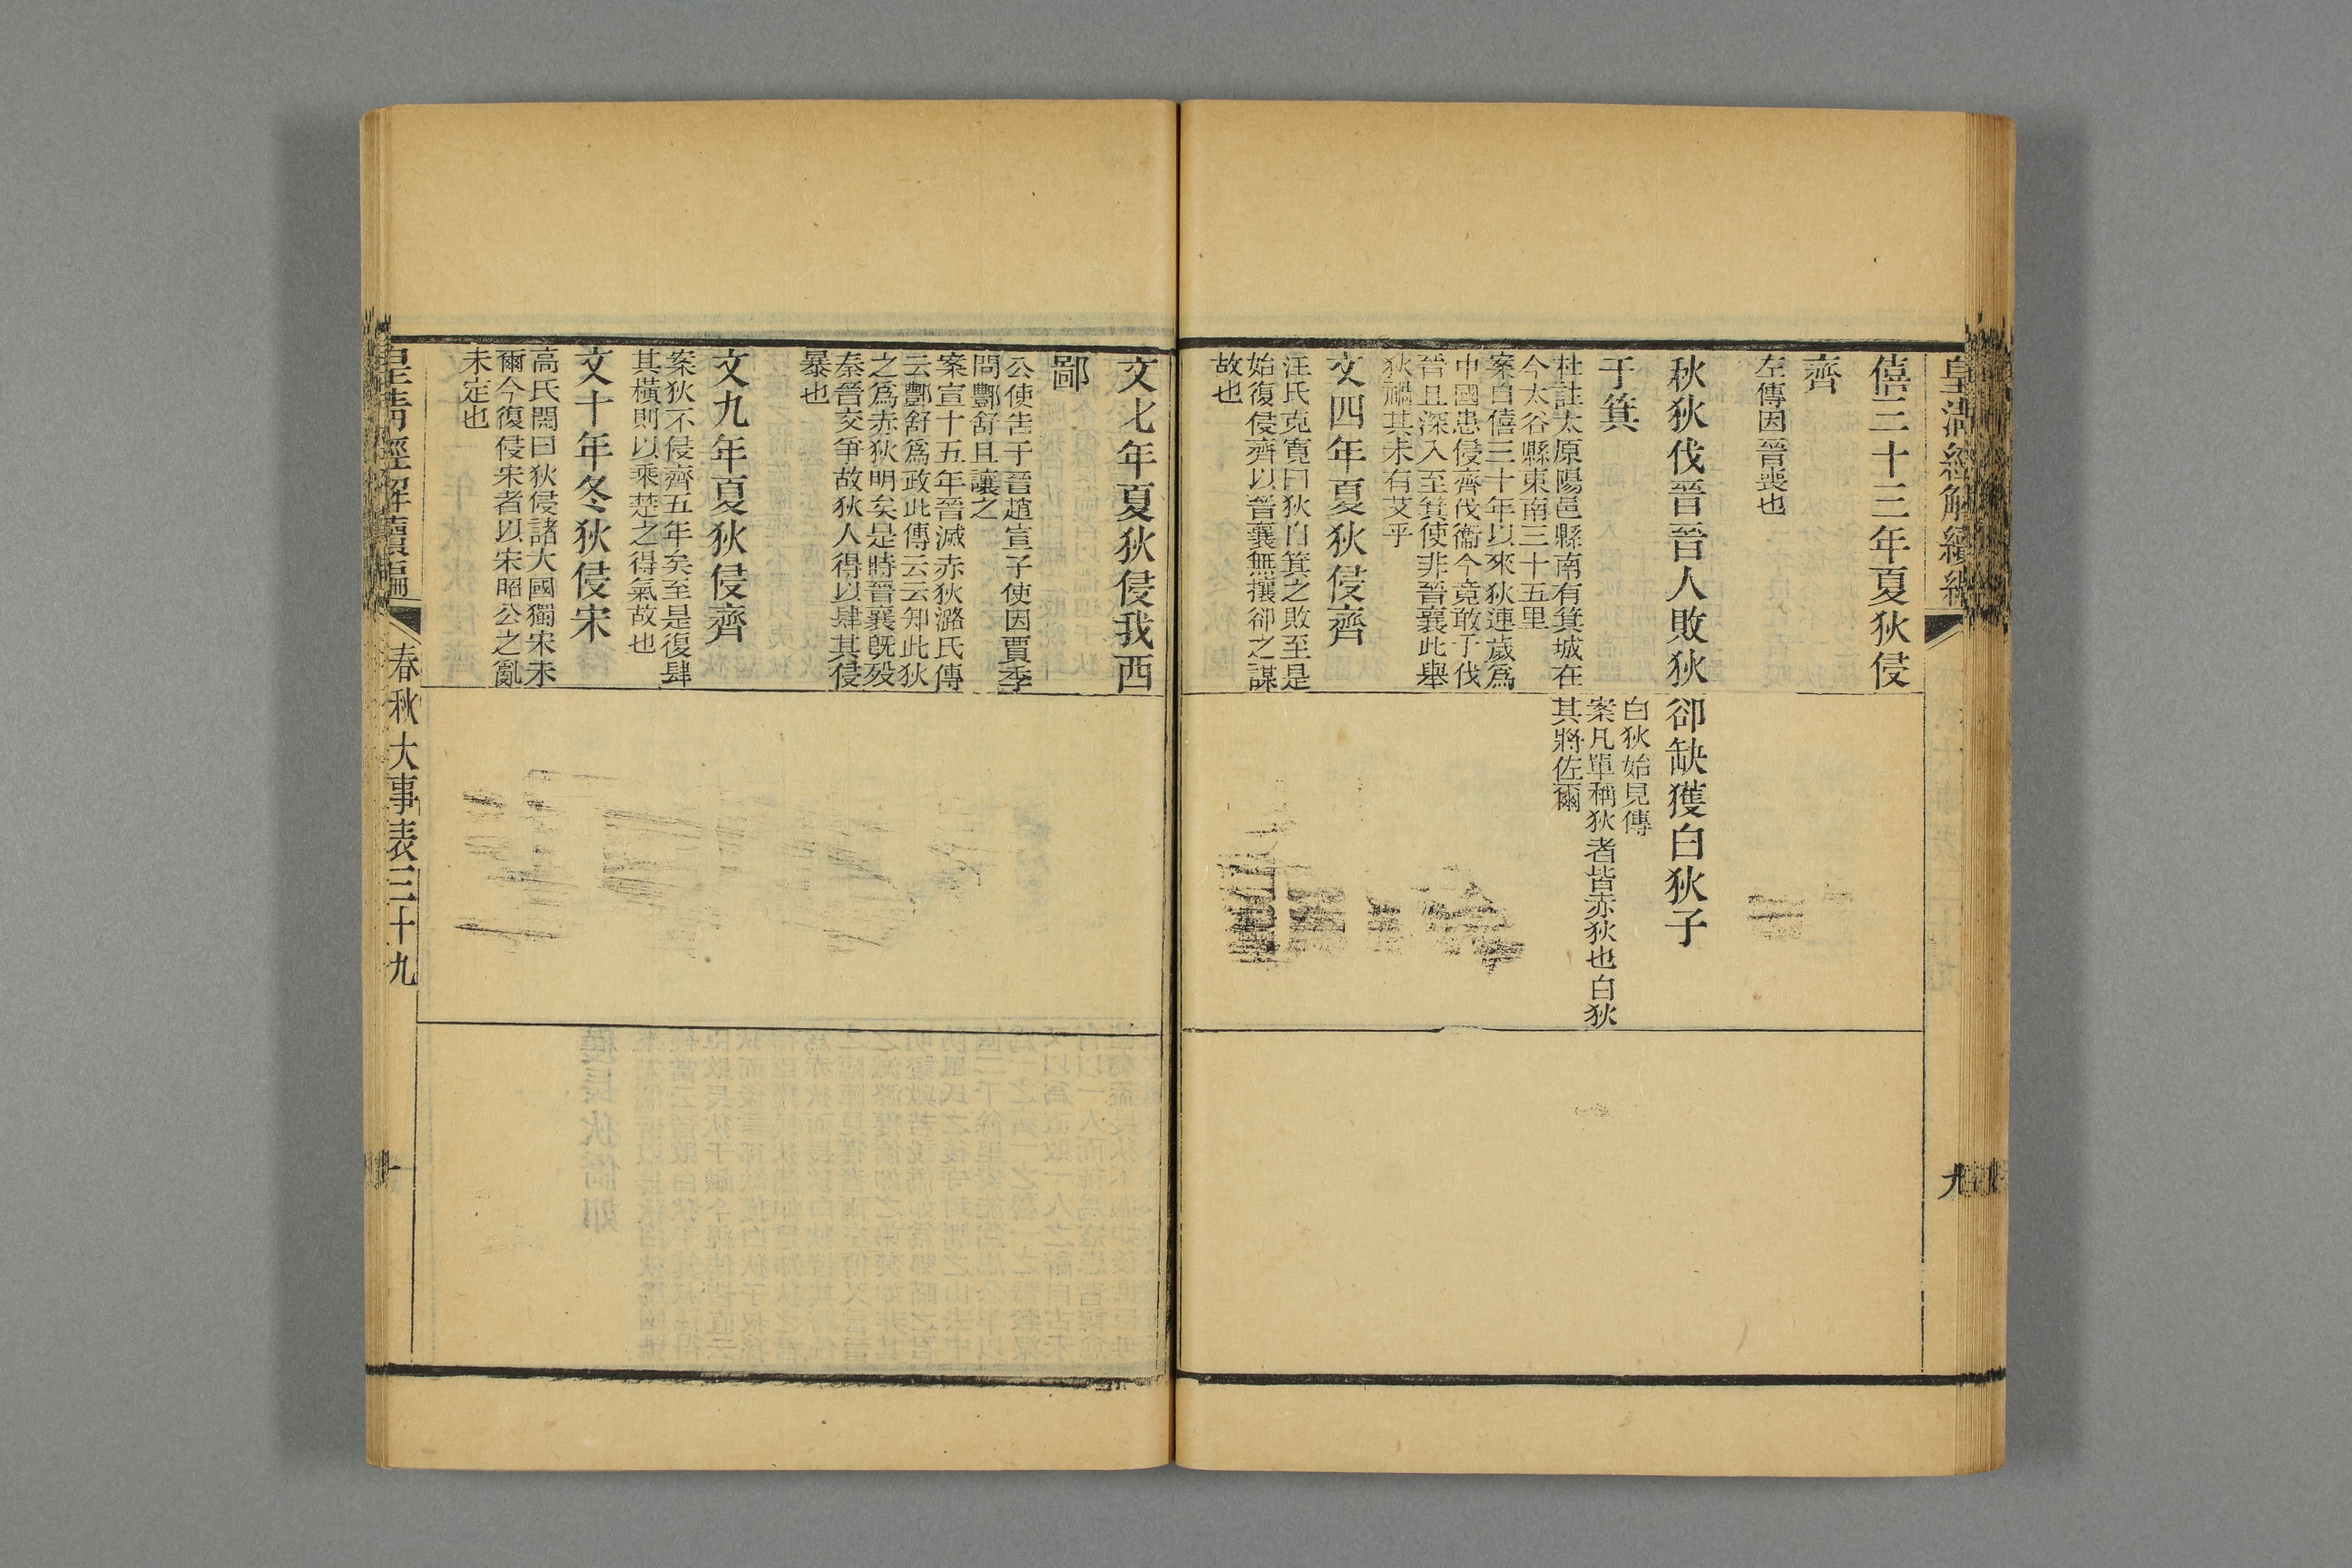 皇清經解續編
九
僖三十三年夏狄侵
齊
左傳因晉喪也
秋狄伐晉晉人敗狄
于箕
杜註太原陽邑縣南有箕城在
今太谷縣東南三十五里
案自僖三十年以來狄連歲為
中國患侵齊伐衞今竟敢于伐
晉且深入至箕使非晉襄此舉
狄禍其未有艾乎
郤缺獲白狄子
白狄始見傳
案凡單稱狄者皆赤狄也白狄
其將佐爾
文四年夏狄侵齊
汪氏克寬曰狄自箕之敗至是
始復侵齊以晉襄無攘卻之謀
故也
文七年夏狄侵我西
鄙
公使告于晉趙宣子使因賈季
問酆舒且讓之
案宣十五年晉滅赤狄潞氏傳
云酆舒爲政此傳云云知此狄
之爲赤狄明矣是時晉襄旣歿
秦晉交爭故狄人得以肆其侵
暴也
文九年夏狄侵齊
案狄不侵齊五年矣至是復肆
其橫則以乘楚之得氣故也
文十年冬狄侵宋
高氏閌曰狄侵諸大國獨宋未
爾今復侵宋者以宋昭公之亂
未定也
皇清經解續編
春秋大事表三十九
十